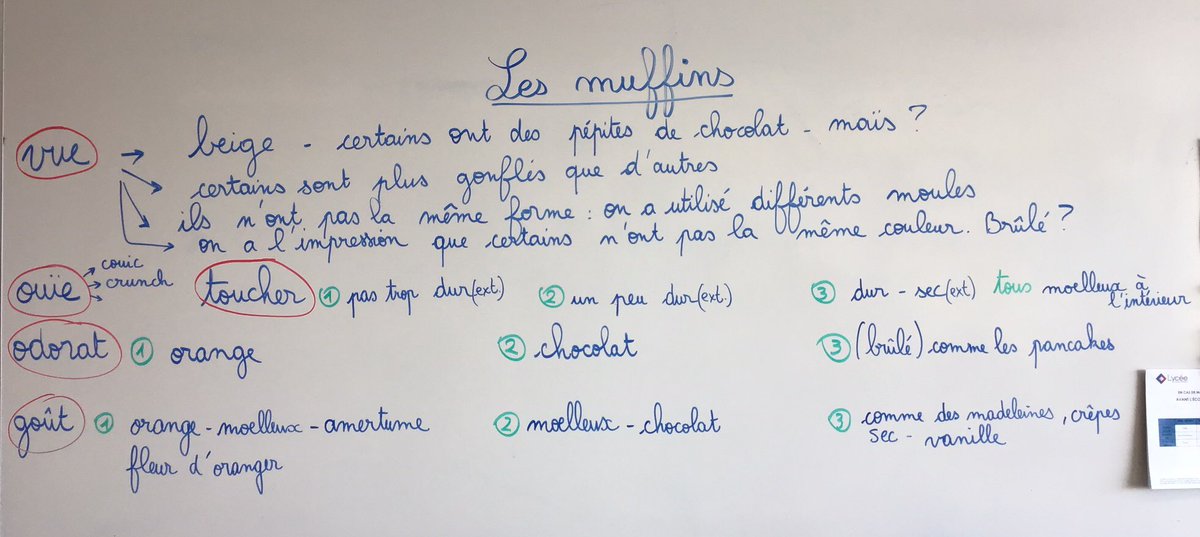 Les muffins
vue → beige - certains ont des pépites de chocolat - maïs ?
certains sont plus gonflés que d'autres
ils n'ont pas la même forme : on a utilisé différents moules
on a l'impression que certains n'ont pas la même couleur. Brûlé ?
ouïe → couic
→ crunch
→
toucher ① pas trop dur (ext.) ② un peu dur (ext.) ③ dur - sec (ext) tous moelleux à l'intérieur
odorat ① orange ② chocolat ③ (brûlé) comme les pancakes
goût ① orange - moelleux - amertume ② moelleux - chocolat ③ comme des madeleines, crêpes
fleur d'oranger sec - vanille
Lycée